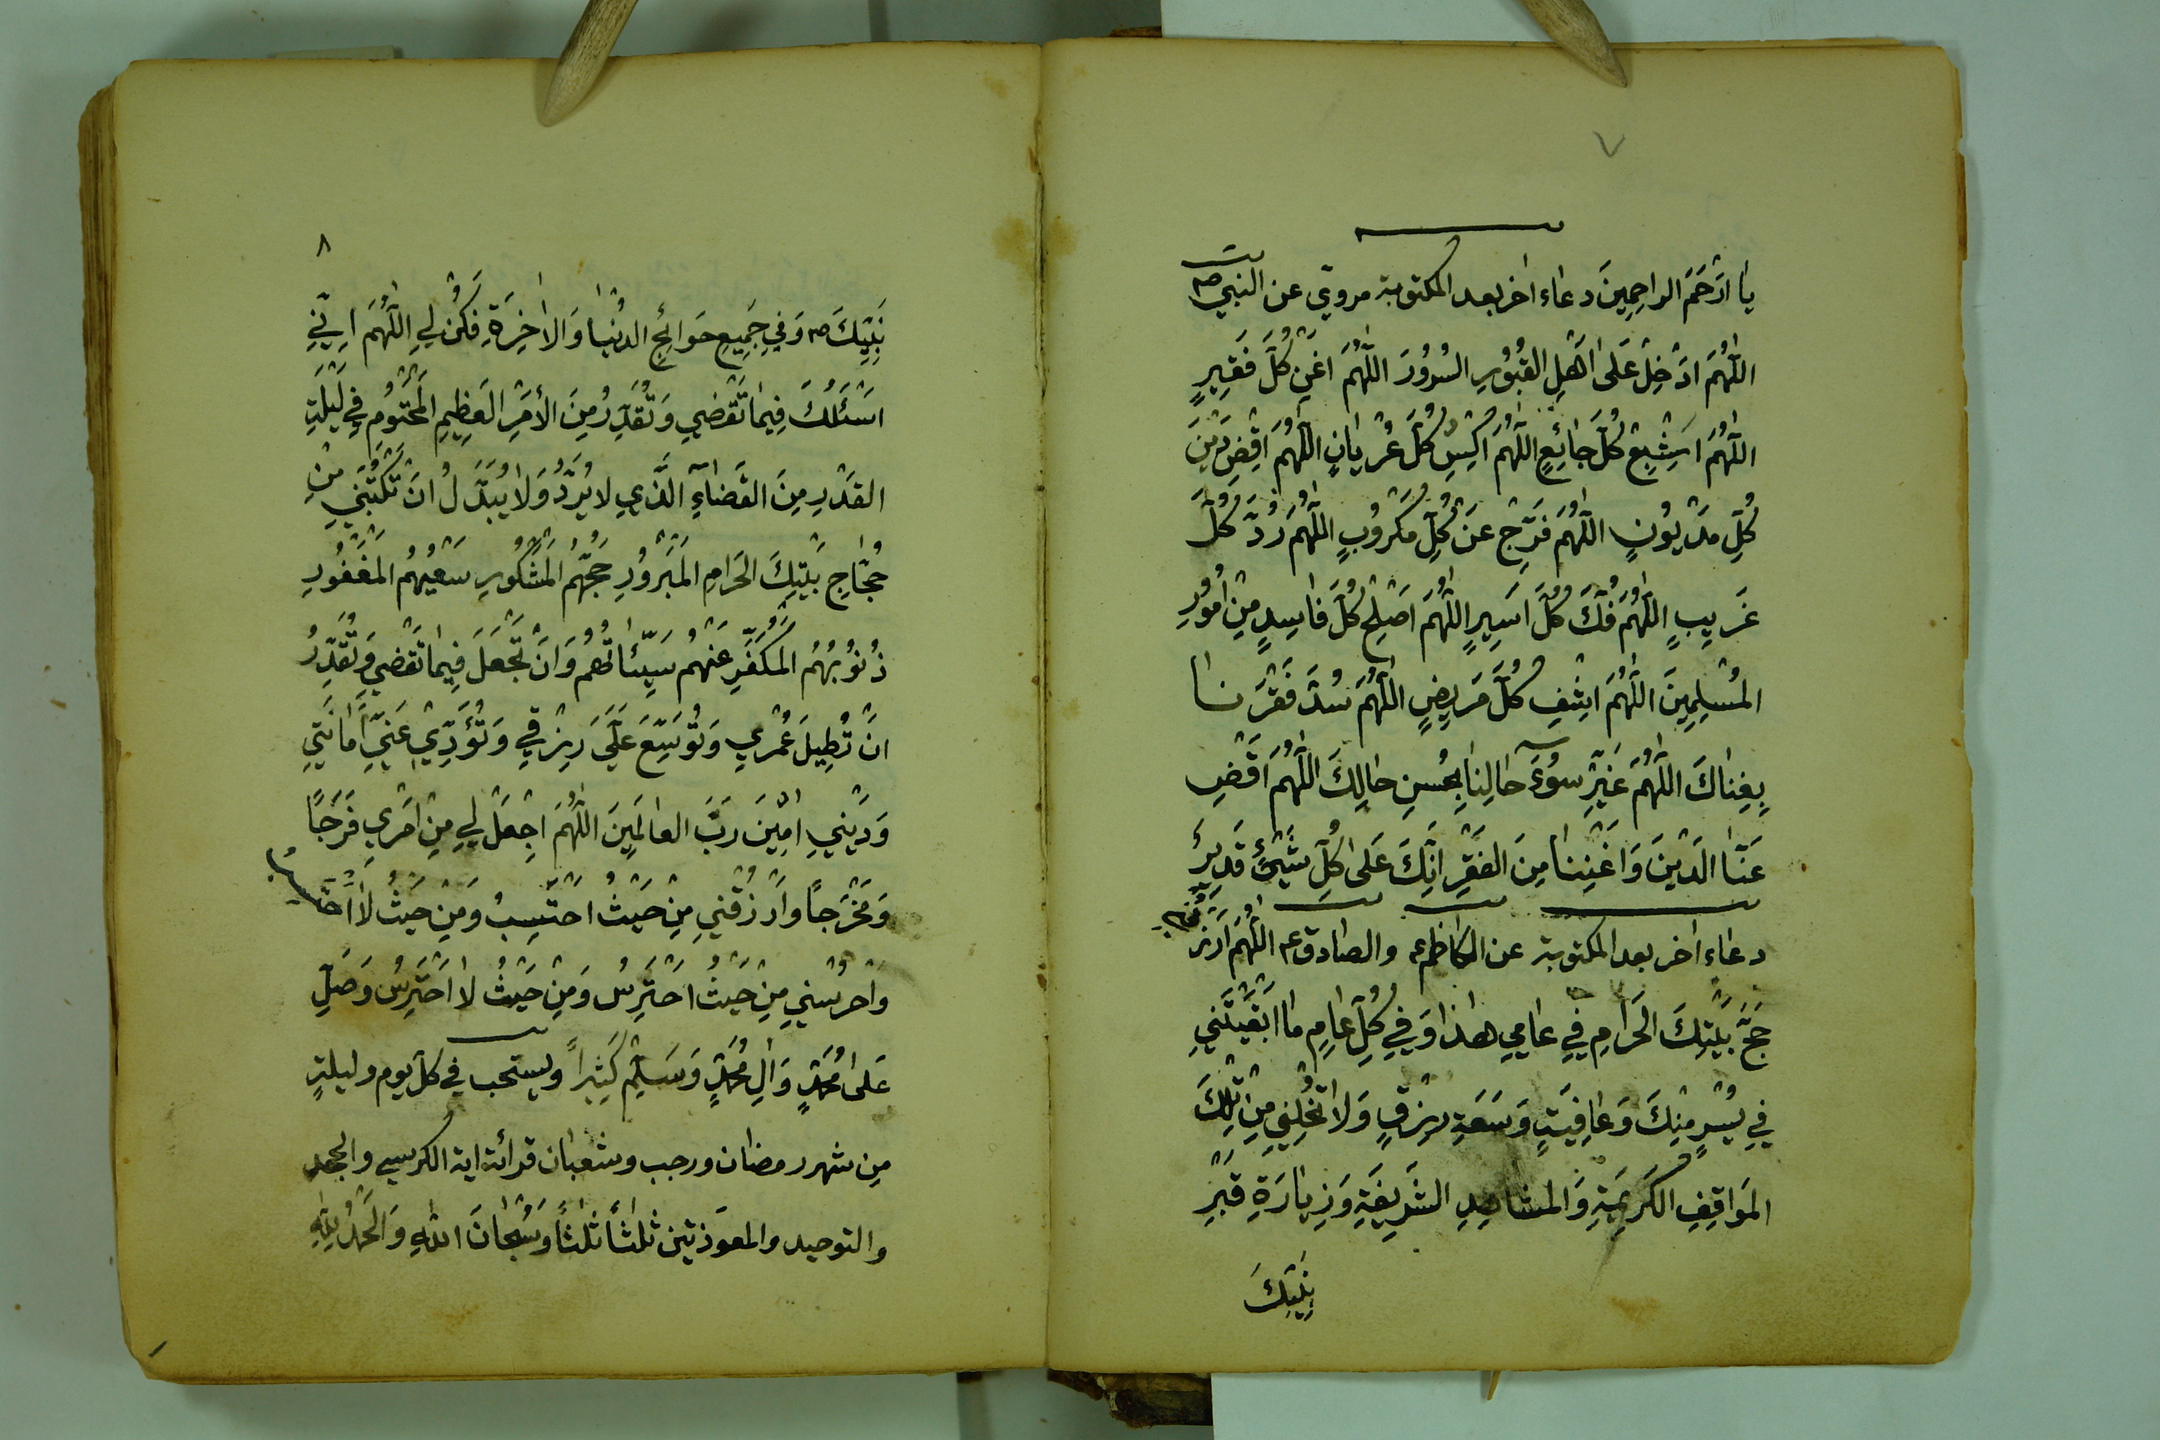 ٧
يا اَرْحَمَ الراحِمِينَ دعاء اخر بعد المكتوبة مروي عن النبي ص
اللّٰهُمَ ادْخِلْ عَلىٰ اَهْلِ القُبُورِ السُرُورَ اللّٰهُمَ اغْنِ كُلَّ فَقِيرٍ
اللّٰهُمَ اشْبِعْ كُلَّ جائِعٍ اللّٰهُمَ اكْسِ كُلَّ عُرْيانٍ اللّٰهُمَ اقْضِ دَيْنَ
كُلِّ مَدْيُونٍ اللّٰهُمَ فَرِّجْ عَنْ كُلِّ مَكْرُوبٍ اللّٰهُمَ رُدَّ كُلَّ
غَرِيبٍ اللّٰهُمَ فُكَّ كُلَّ اَسِيرٍ اللّٰهُمَ اصْلِحْ كُلَّ فاسِدٍ مِنْ اُمُورِ
المُسْلِمِينَ اللّٰهُمَ اشْفِ كُلَّ مَرِيضٍ اللّٰهُمَ سُدَّ فَقْرَنا
بِغِناكَ اللّٰهُمَ غَيِّرْ سُوۤءَ حالِنا بِحُسْنِ حالِكَ اللّٰهُمَ اقْضِ
عَنَّا الدَيْنَ وَاَغْنِنا مِنَ الفَقْرِ اِنَّكَ عَلىٰ كُلِّ شَيْءٍ قَدِيرٌ
دعاء اخر بعد المكتوبة عن الكاظم ع والصادق ع اللّٰهُمَ ارْزُقْنِي
حَجَّ بَيْتِكَ الحَرامِ فِي عامِي هٰذا وَفِي كُلِّ عامٍ ما اَبْقَيْتَنِي
فِي يُسْرٍ مِنْكَ وَعافِيَةٍ وَسَعَةِ رِزْقٍ وَلا تُخْلِنِي مِنْ تِلْكَ
المَواقِفِ الكَرِيمَةِ وَالمشاهِدِ الشَرِيفَةِ وَزِيارَةِ قَبْرِ
نَبِيِّكَ
٨
نَبِيِّكَ ص وَفِي جَمِيعِ حَوائِجِ الدُنْيا وَالاٰخِرَةِ فَكُنْ لِي اللّٰهُمَ اِنِّي
اَسْئَلُكَ فِيما تَقْضِي وَتُقَدِّرُ مِنَ الأَمْرِ العَظِيمِ المَحْتُومِ فِي لَيْلَةِ
القَدْرِ مِنَ القَضاۤءِ الَّذِي لا يُرَدُّ وَلا يُبَدَّلُ اَنْ تَكْتُبَنِي مِنْ
حُجّاجِ بَيْتِكَ الحَرامِ المَبْرُورِ حَجُّهُمُ المَشْكُورِ سَعْيُهُمُ المَغْفُورِ
ذُنُوبُهُمُ المُكَفَّرِ عَنْهُمْ سَيِّئاتُهُمْ وَاَنْ تَجْعَلَ فِيما تَقْضِي وَتُقَدِّرُ
اَنْ تُطِيلَ عُمْرِي وَتُوَسِّعَ عَلَيَّ رِزْقِي وَتُؤَدِّيَ عَنِّي اَمانَتِي
وَدَيْنِي اٰمِينَ رَبَّ العالَمِينَ اللّٰهُمَ اجْعَلْ لِي مِنْ اَمْرِي فَرَجًا
وَمَخْرَجاً وارْزُقْنِي مِنْ حَيْثُ احْتَسِبُ وَمِنْ حَيْثُ لا اَحْتَسِبُ
واحْرُسْنِي مِنْ حَيْثُ احْتَرِسُ وَمِنْ حَيْثُ لا احْتَرِسُ وَصَلِّ
عَلىٰ مُحَمَّدٍ وَاٰلِ مُحَمَّدٍ وَسَلِّمْ كَثِيراً ويستحب في كل يوم وليلة
من شهر رمضان ورجب وشعبان قرائة اية الكرسي والحمد
والتوحيد والمعوذتين ثلثاً ثلثاً وَسُبْحانَ اللّٰهِ وَالحَمْدُ لِلّٰهِ